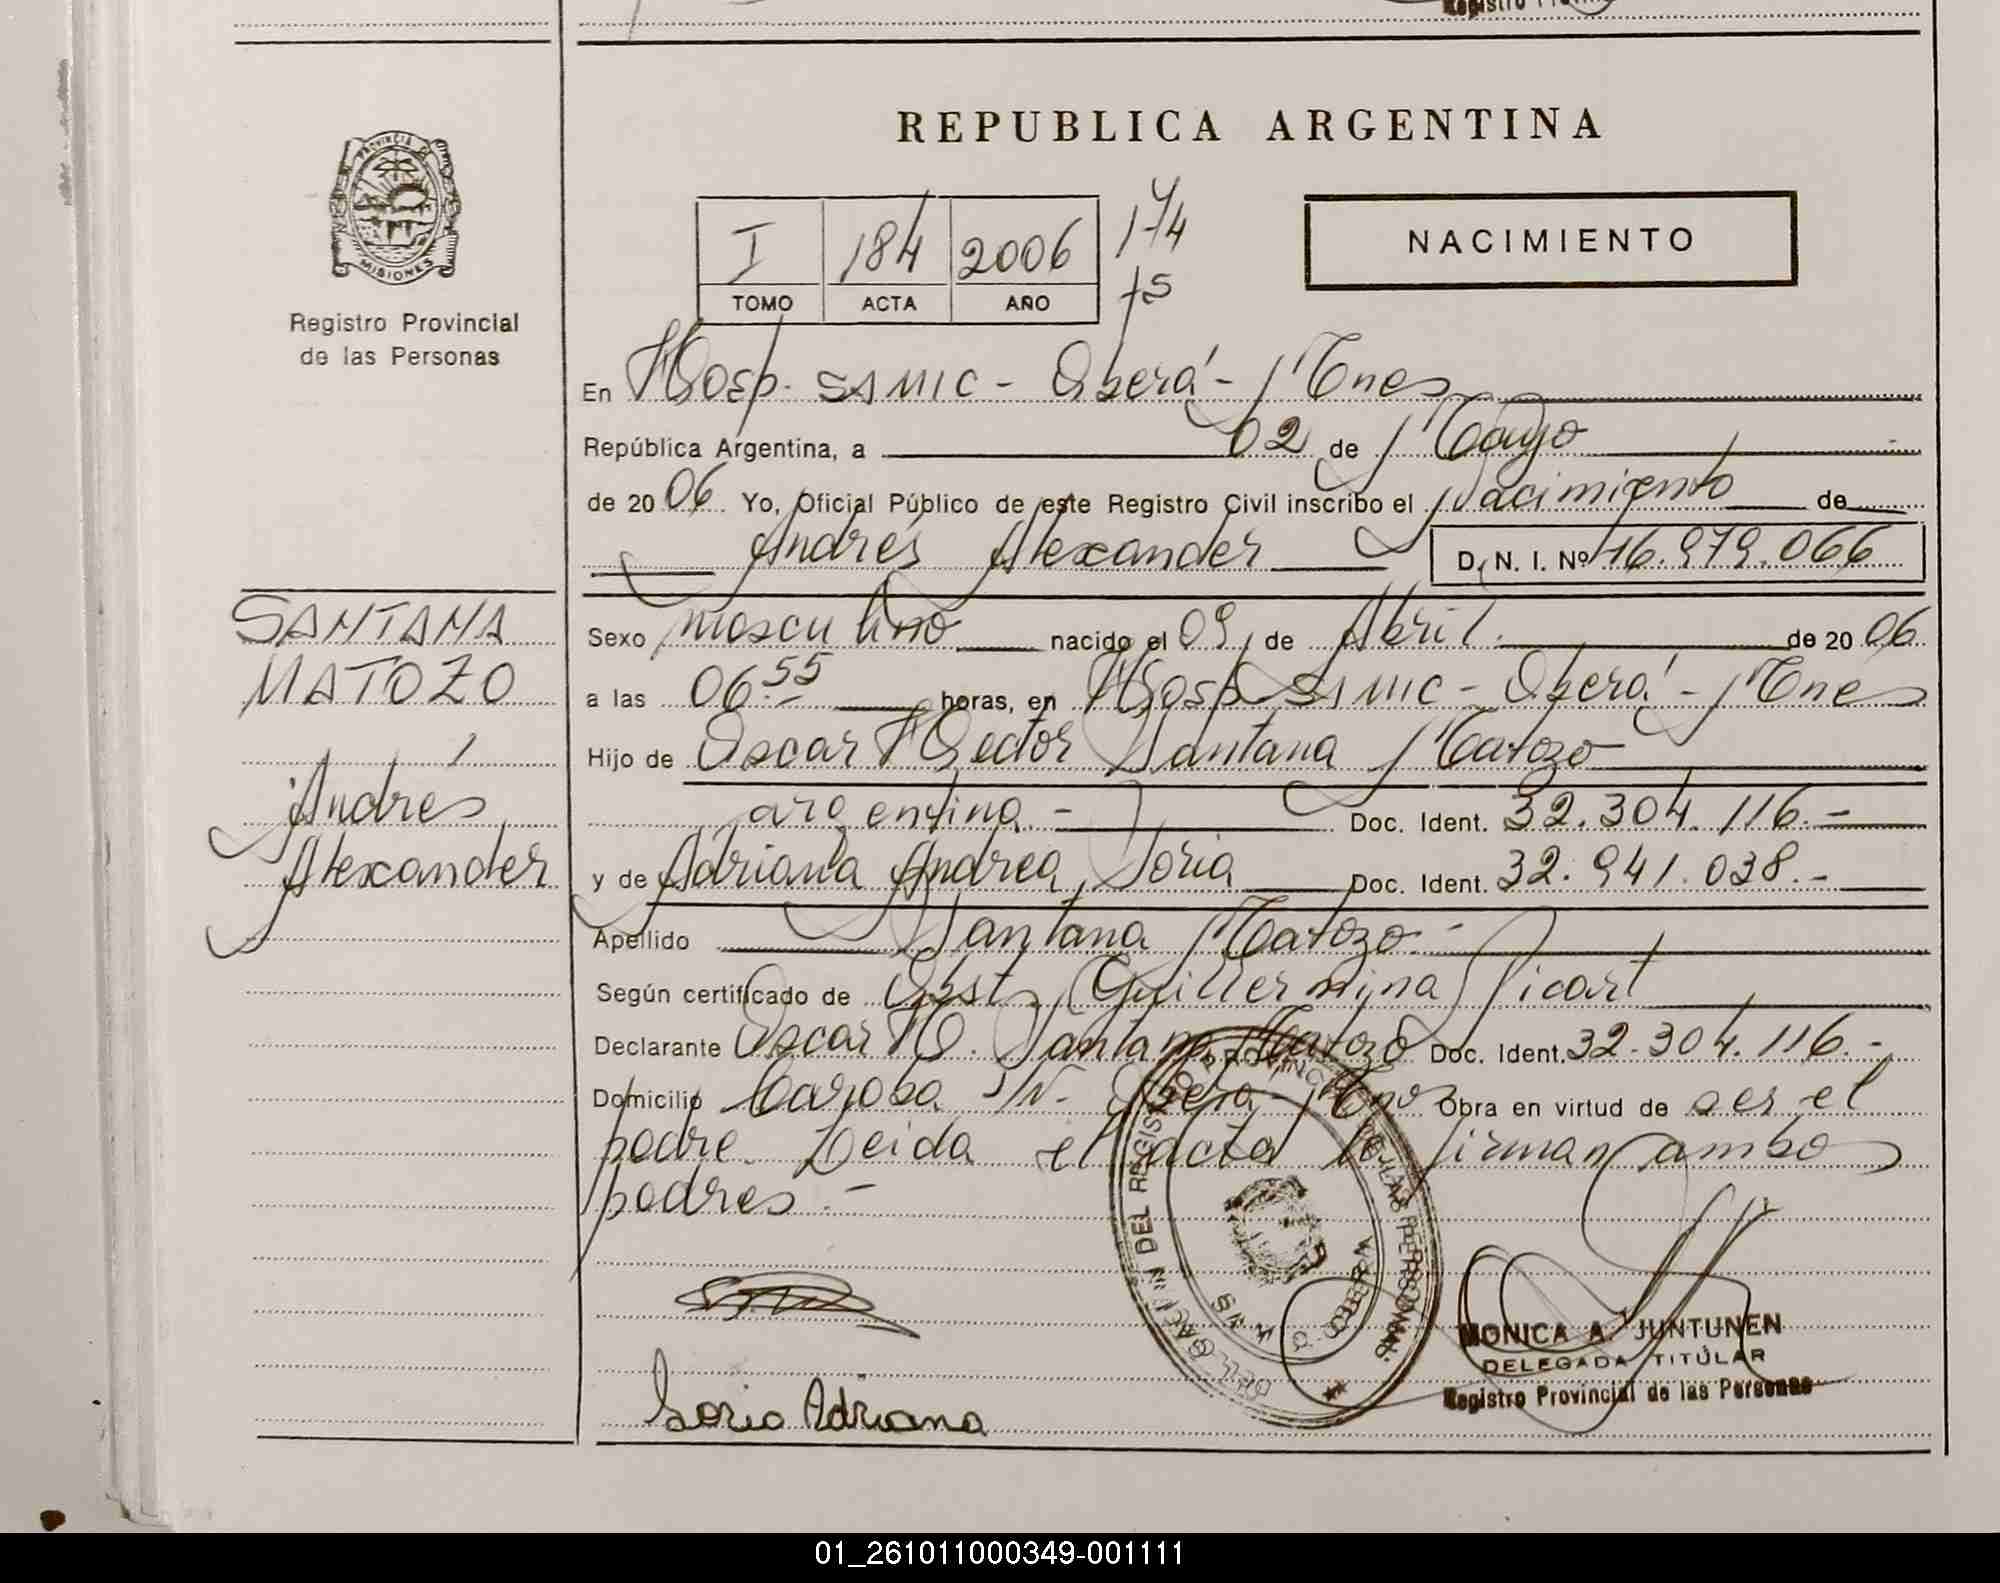 REPUBLICA ARGENTINA
PROVINCIA DE
MISIONES
Registro Provincial
de las Personas
I 184 2006
TOMO ACTA AÑO
NACIMIENTO
En Hosp. SAMIC - Oberá - Mnes
República Argentina, a 02 de Mayo
de 2006 Yo, Oficial Público de este Registro Civil inscribo el Nacimiento de
Andrés Alexander D. N. I. Nº 46.979.066
SANTANA
MATOZO
Andrés
Alexander
Sexo masculino nacido el 09 de Abril. de 2006
a las 06.55 horas, en Hosp SAMIC - Oberá - Mnes
Hijo de Oscar Hector Santana Matozo
argentina - Doc. Ident. 32.304.116.-
y de Adriana Andrea Soria Doc. Ident. 32.941.038.-
Apellido Santana Matozo -
Según certificado de Obst. Guillermina Picart
Declarante Oscar H. Santana Matozo Doc. Ident. 32.304.116.-
Domicilio Caroba S/N- Oberá - Mnes Obra en virtud de ser el
padre. Leida el acta la firman ambos
padres. -
Soria Adriana
MONICA A. JUNTUNEN
DELEGADA TITULAR
Registro Provincial de las Personas
01_261011000349-001111